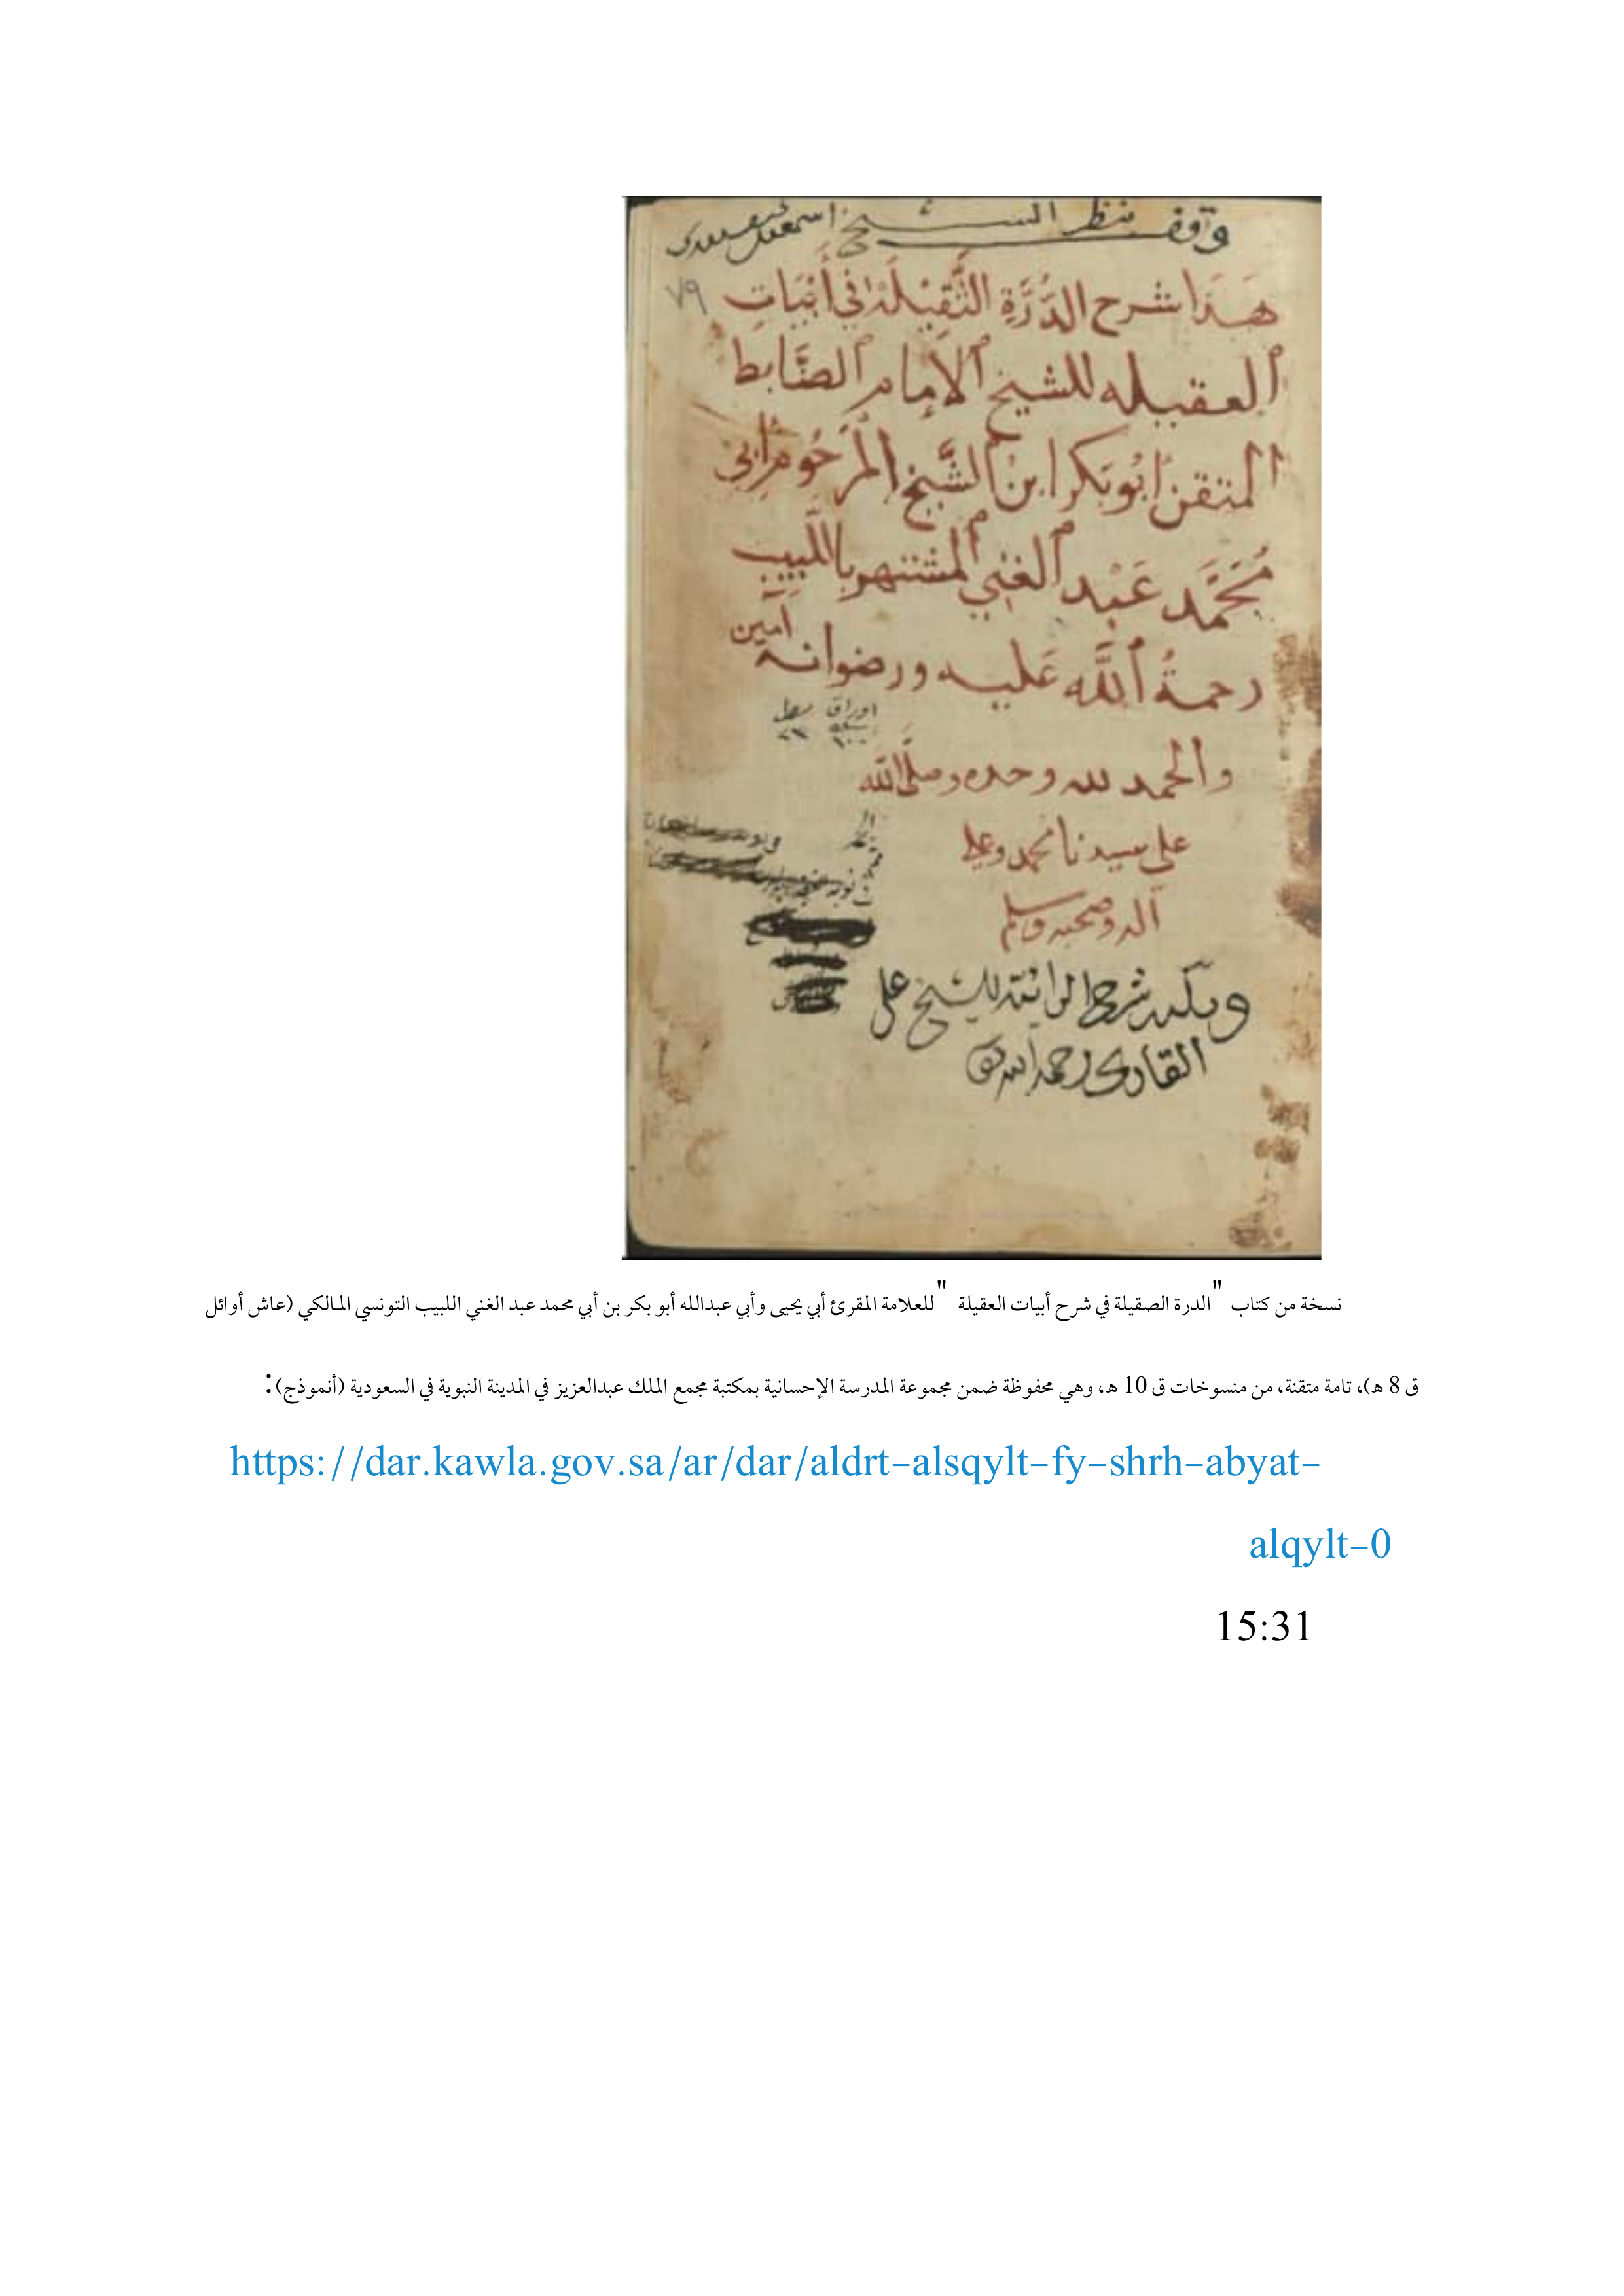 وقف بنظر الشيخ اسمعيل
هَذَا شرح الدُّرَّةِ الثَّقِيْلَة في أَبْيَاتِ
٧٩
العقيله للشيخ الإمام الضَّابط
المتقن ابُو بَكر ابن الشَّيخ المَرحُوم أبي
مُحَمَّد عَبْد الغني المشتهر باللَّبِيبِ
رحمةُ اللَّه عَليه ورضوانه آمين
اوراق سطر
والحمد لله وحده وصلَّى الله
على سيدنا محمد وعلى
آله وصحبه وسلم
ويليه شرح الرائية للشيخ على
القارى رحمه الله
نسخة من كتاب "الدرة الصقيلة في شرح أبيات العقيلة" للعلامة المقرئ أبي يحيى وأبي عبدالله أبو بكر بن أبي محمد عبد الغني اللبيب التونسي المالكي (عاش أوائل
ق 8 ه)، تامة متقنة، من منسوخات ق 10 ه، وهي محفوظة ضمن مجموعة المدرسة الإحسانية بمكتبة مجمع الملك عبدالعزيز في المدينة النبوية في السعودية (أنموذج):
https://dar.kawla.gov.sa/ar/dar/aldrt-alsqylt-fy-shrh-abyat-
alqylt-0
15:31